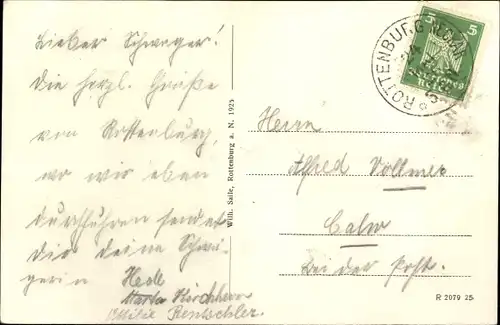 Lieber Schwager!
Die herzl. Grüße
von Rottenburg,
wo wir eben
durchfahren sendet
dir deine Schwä-
gerin Hede
Kirchherr
Rentschler.
Wilh. Saile, Rottenburg a. N. 1925
ROTTENBURG
5 5
Herrn
Alfred Vollmer
Calw
bei der Post.
R 2079 25